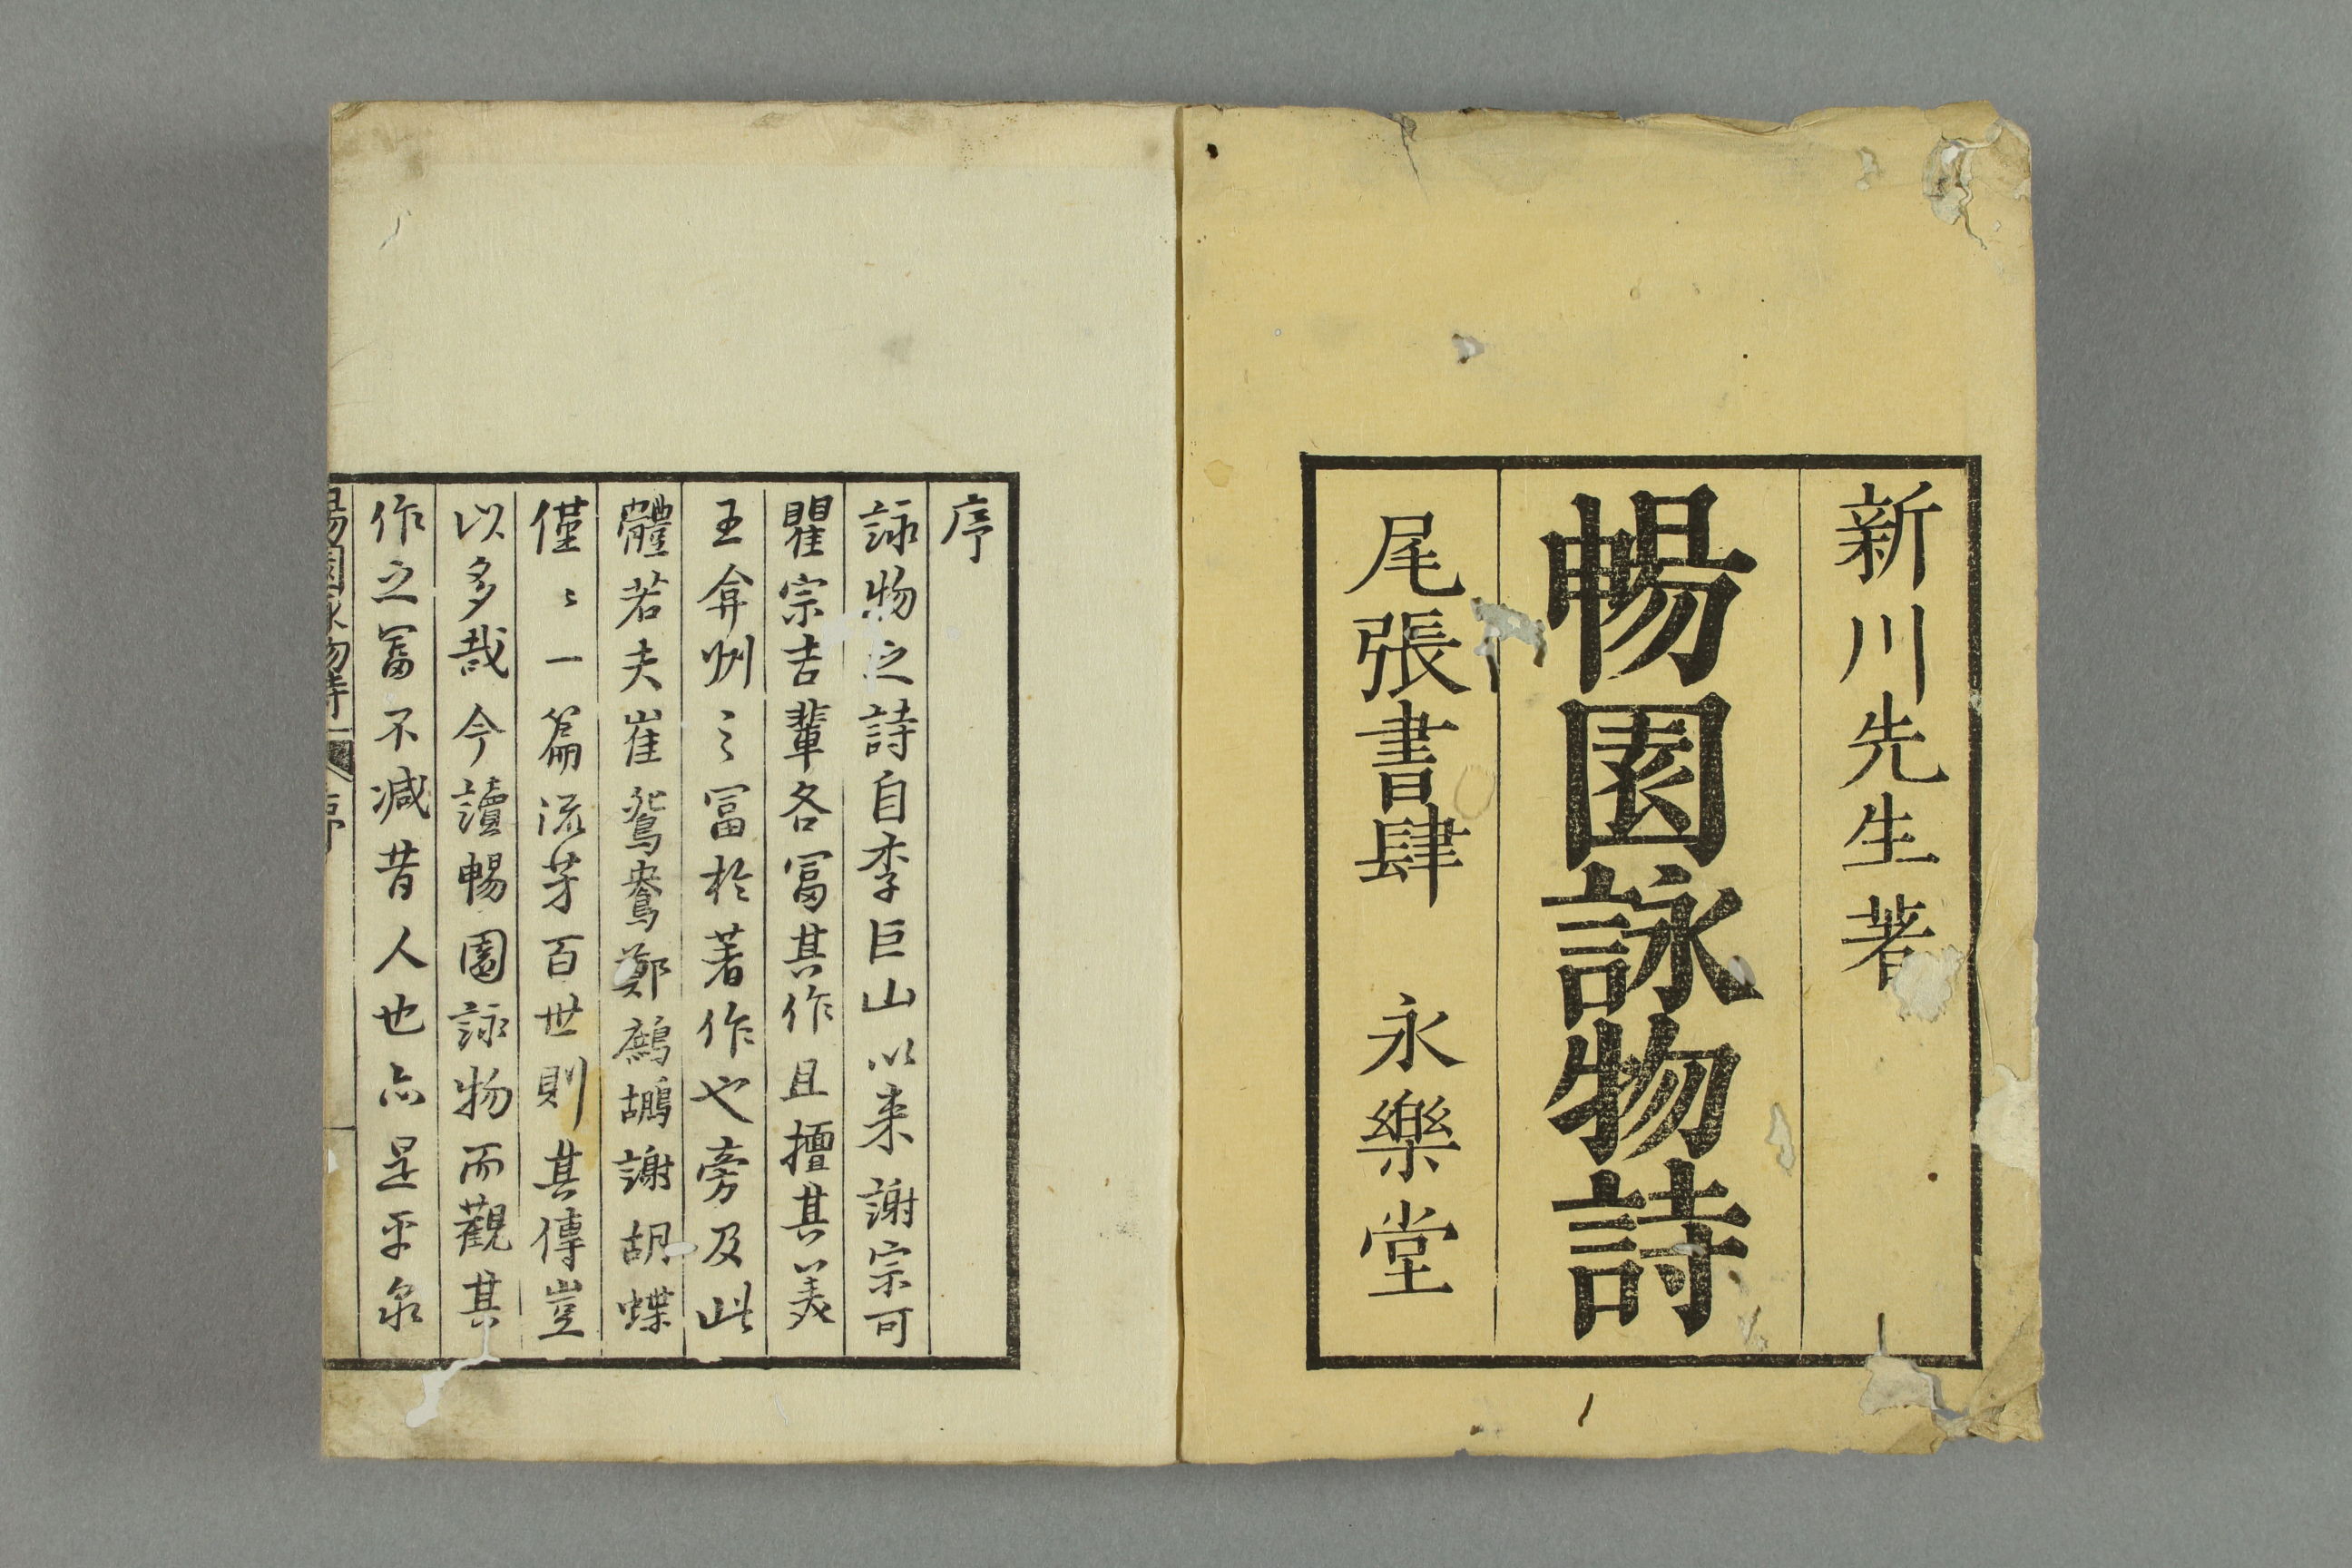 新川先生著
暢園詠物詩
尾張書肆　永樂堂
序
詠物之詩自李巨山以来謝宗可
瞿宗吉輩各冨其作且擅其美
王弇州之冨於著作也旁及此
體若夫崔鴛鴦鄭鷓鴣謝胡蝶
僅〻一篇流芳百世則其傳豈
以多哉今讀暢園詠物而觀其
作之冨不減昔人也亦是平泉
暢園詠物詩　序